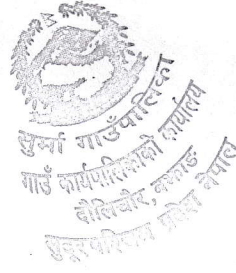 सुर्मा गाउँपालिका
गाउँ कार्यपालिकाको कार्यालय
दौलिचौर, बझाङ
सुदूरपश्चिम प्रदेश नेपाल